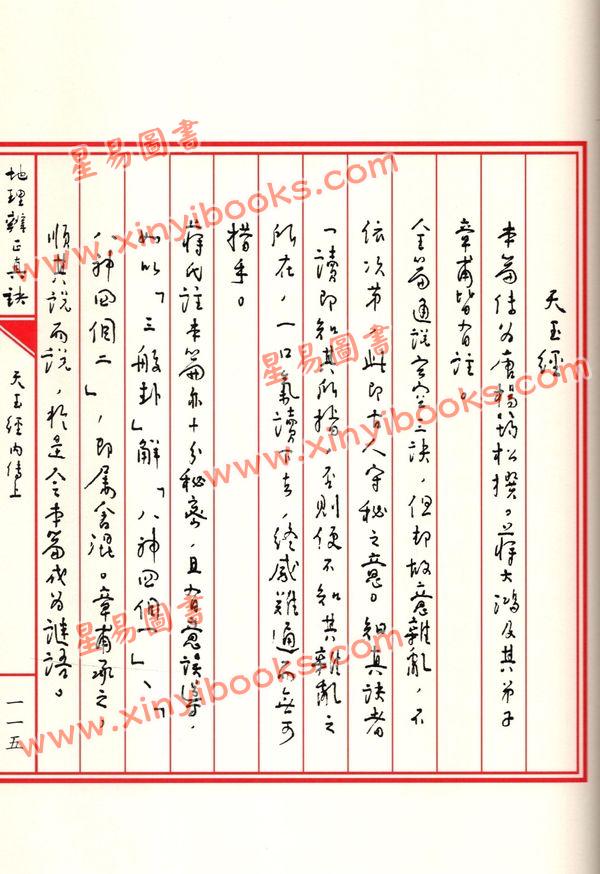 天玉經
本篇傳為唐楊筠松撰。蔣大鴻及其弟子
章甫皆有註。
全篇通說玄空三訣,但却故意雜亂,不
依次第,此即古人守秘之意。知其訣者
一讀即知其所指,否則便不知其雜亂之
所在,一口氣讀下去,終感難通而無可
措手。
蔣氏註本篇亦十分秘密,且有意誤導,
如以「三般卦」解「八神四個一」、「
八神四個二」,即屬含混。章甫承之,
順其說而說,於是令本篇成為謎語。
地理辨正真訣
天玉經內傳上
一一五
星易圖書
www.xinyibooks.com
星易圖書
www.xinyibooks.com
星易圖書
www.xinyibooks.com